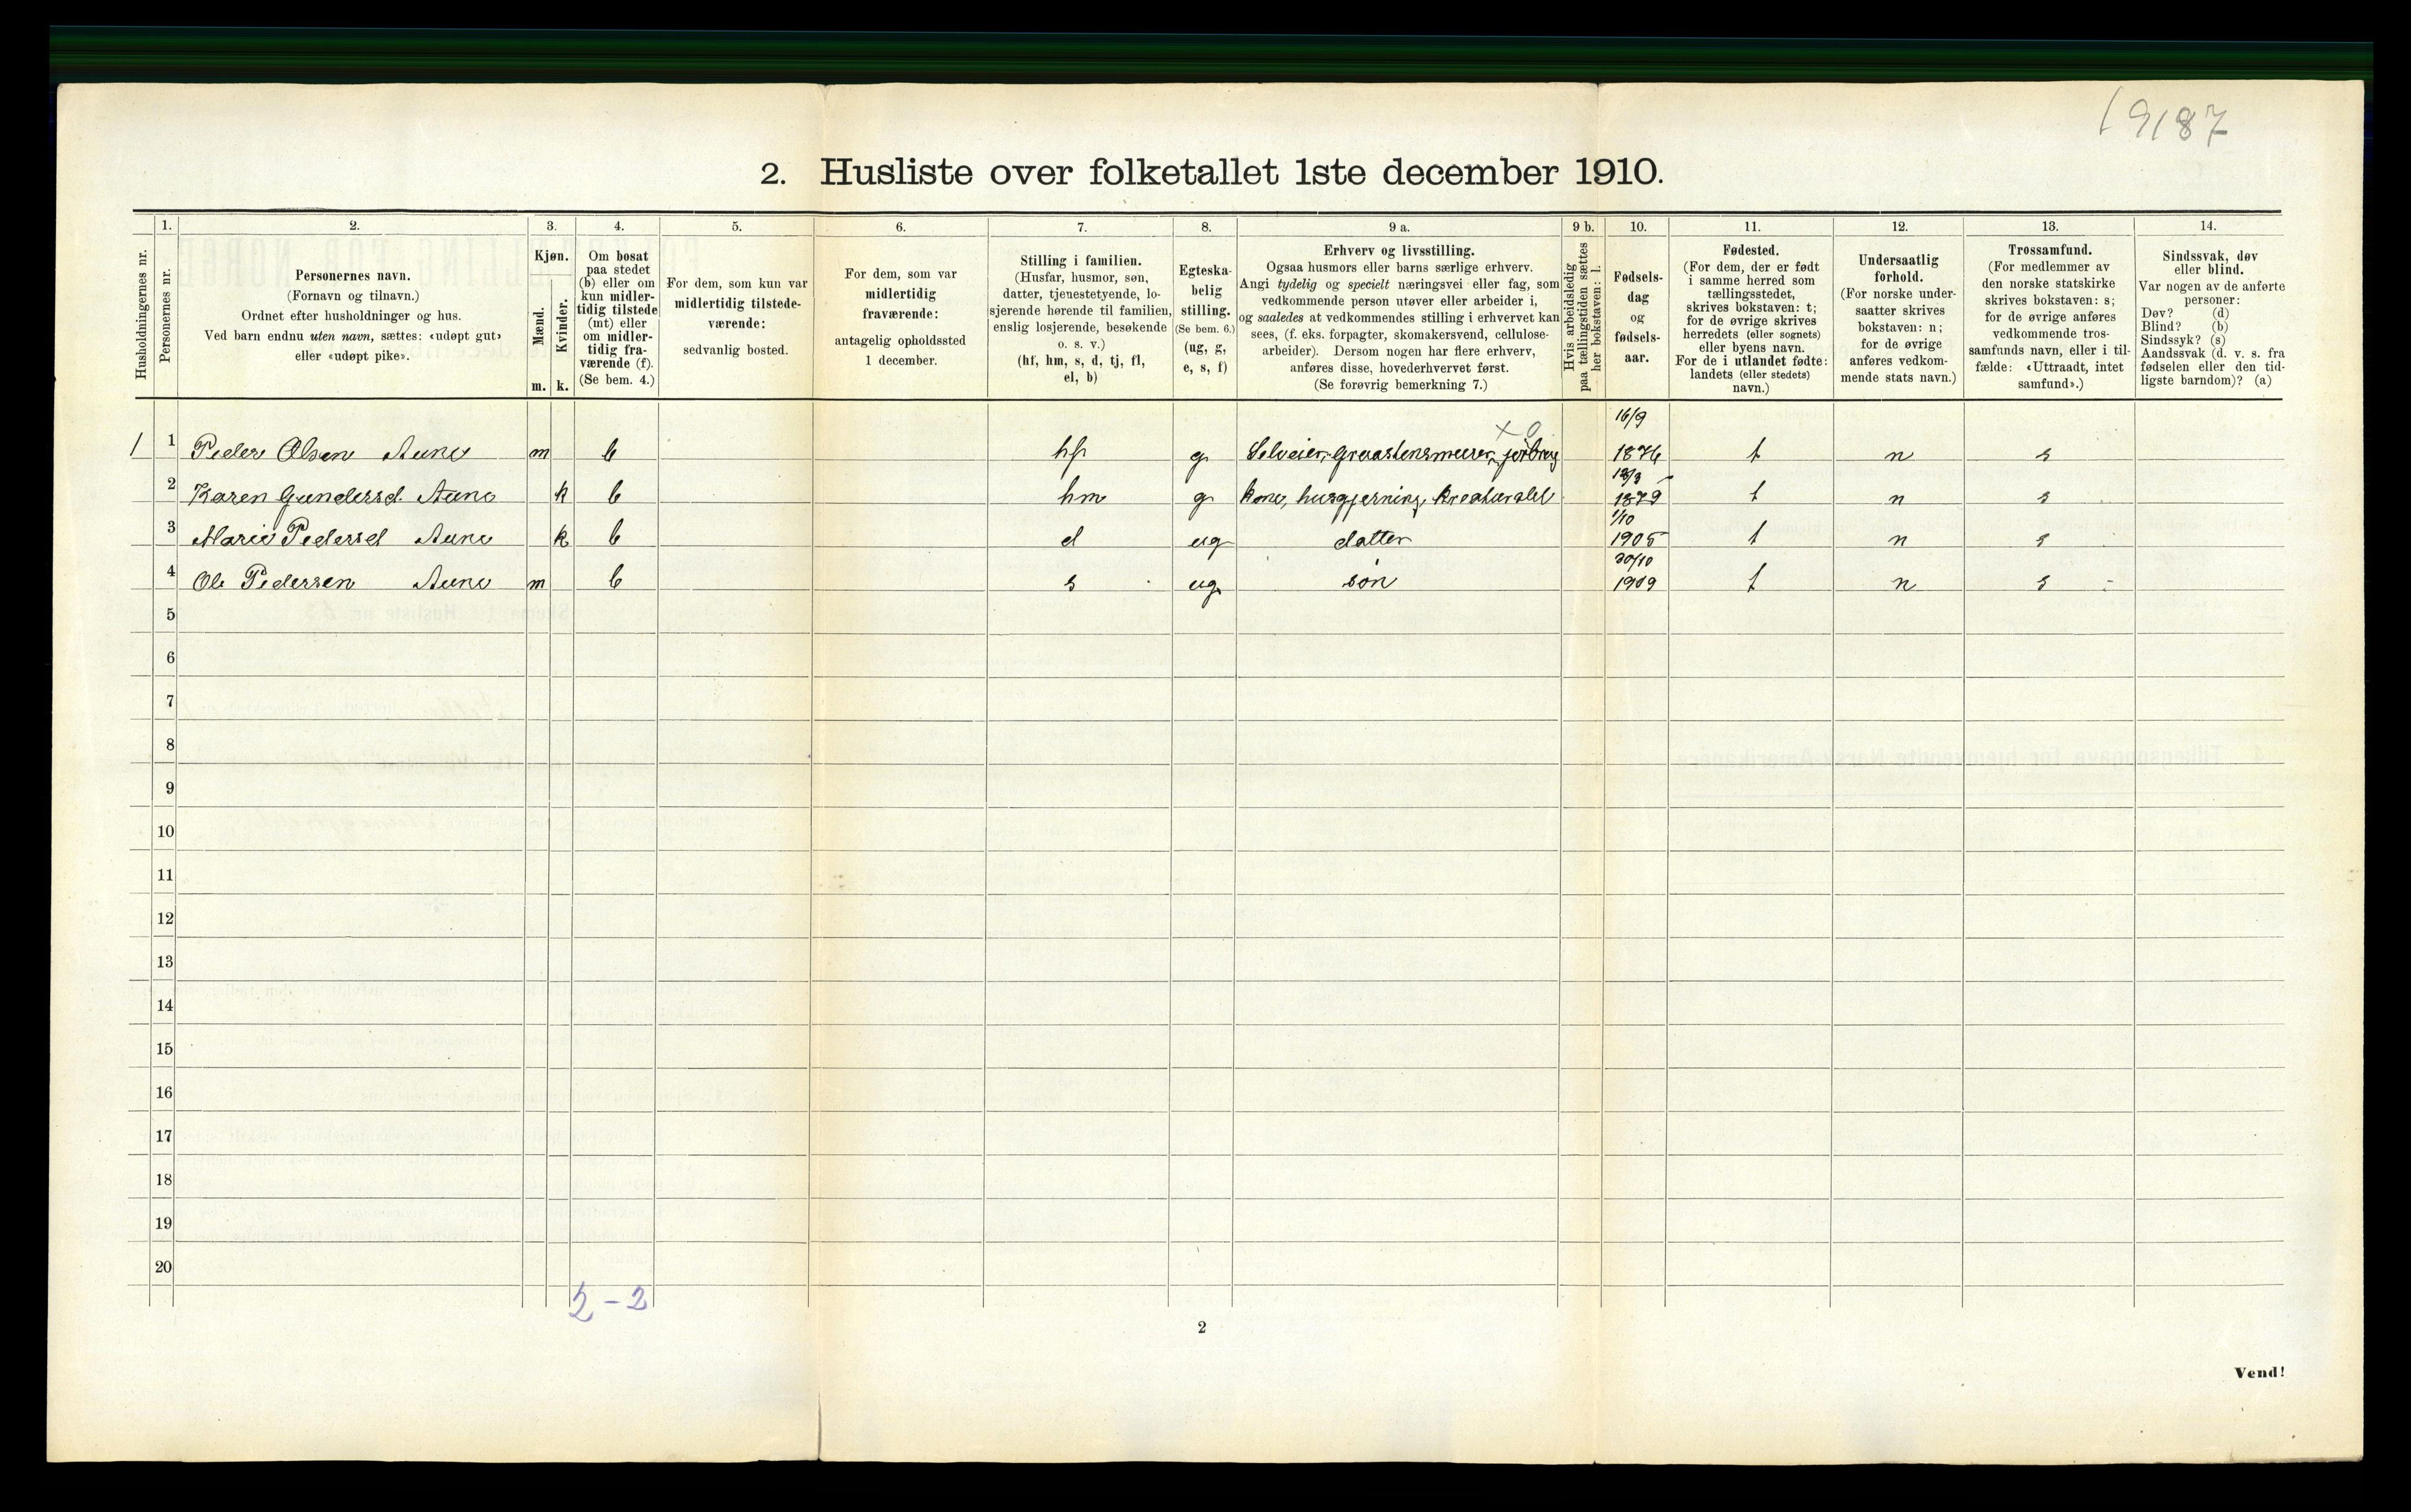 19187
2. Husliste over folketallet 1ste december 1910.
Husholdningernes nr.
1.
Personernes nr.
2.
Personernes navn.
(Fornavn og tilnavn.)
Ordnet efter husholdninger og hus.
Ved barn endnu uten navn, sættes: «udøpt gut»
eller «udøpt pike».
3.
Kjøn.
Mænd.
m.
Kvinder.
k.
4.
Om bosat
paa stedet
(b) eller om
kun midler-
tidig tilstede
(mt) eller
om midler-
tidig fra-
værende (f).
(Se bem. 4.)
5.
For dem, som kun var
midlertidig tilstede-
værende:
sedvanlig bosted.
6.
For dem, som var
midlertidig
fraværende:
antagelig opholdssted
1 december.
7.
Stilling i familien.
(Husfar, husmor, søn,
datter, tjenestetyende, lo-
sjerende hørende til familien,
enslig losjerende, besøkende
o. s. v.)
(hf, hm, s, d, tj, fl,
el, b)
8.
Egteska-
belig
stilling.
(Se bem. 6.)
(ug, g,
e, s, f)
9 a.
Erhverv og livsstilling.
Ogsaa husmors eller barns særlige erhverv.
Angi tydelig og specielt næringsvei eller fag, som
vedkommende person utøver eller arbeider i,
og saaledes at vedkommendes stilling i erhvervet kan
sees, (f. eks. forpagter, skomakersvend, cellulose-
arbeider). Dersom nogen har flere erhverv,
anføres disse, hovederhvervet først.
(Se forøvrig bemerkning 7.)
9 b.
Hvis arbeidsledig
paa tællingstiden sættes
her bokstaven: l.
10.
Fødsels-
dag
og
fødsels-
aar.
11.
Fødested.
(For dem, der er født
i samme herred som
tællingsstedet,
skrives bokstaven: t;
for de øvrige skrives
herredets (eller sognets)
eller byens navn.
For de i utlandet fødte:
landets (eller stedets)
navn.)
12.
Undersaatlig
forhold.
(For norske under-
saatter skrives
bokstaven: n;
for de øvrige
anføres vedkom-
mende stats navn.)
13.
Trossamfund.
(For medlemmer av
den norske statskirke
skrives bokstaven: s;
for de øvrige anføres
vedkommende tros-
samfunds navn, eller i til-
fælde: «Uttraadt, intet
samfund».)
14.
Sindssvak, døv
eller blind.
Var nogen av de anførte
personer:
Døv? (d)
Blind? (b)
Sindssyk? (s)
Aandssvak (d. v. s. fra
fødselen eller den tid-
ligste barndom)? (a)
1 1 Peder Olsen Aune m b hf g Selveier, Graastensmurer, jorbrug 16/9 1876 t n s
x 0
2 Karen Gundersd Aune k b hm g kone, husgjerning, kreaturstel 1879 t n s
3 Marie Pedersd Aune k b d ug datter 1/10 1905 t n s
4 Ole Pedersen Aune m b s ug søn 30/10 1909 t n s
5
6
7
8
9
10
11
12
13
14
15
16
17
18
19
20
2 - 2
2
Vend!